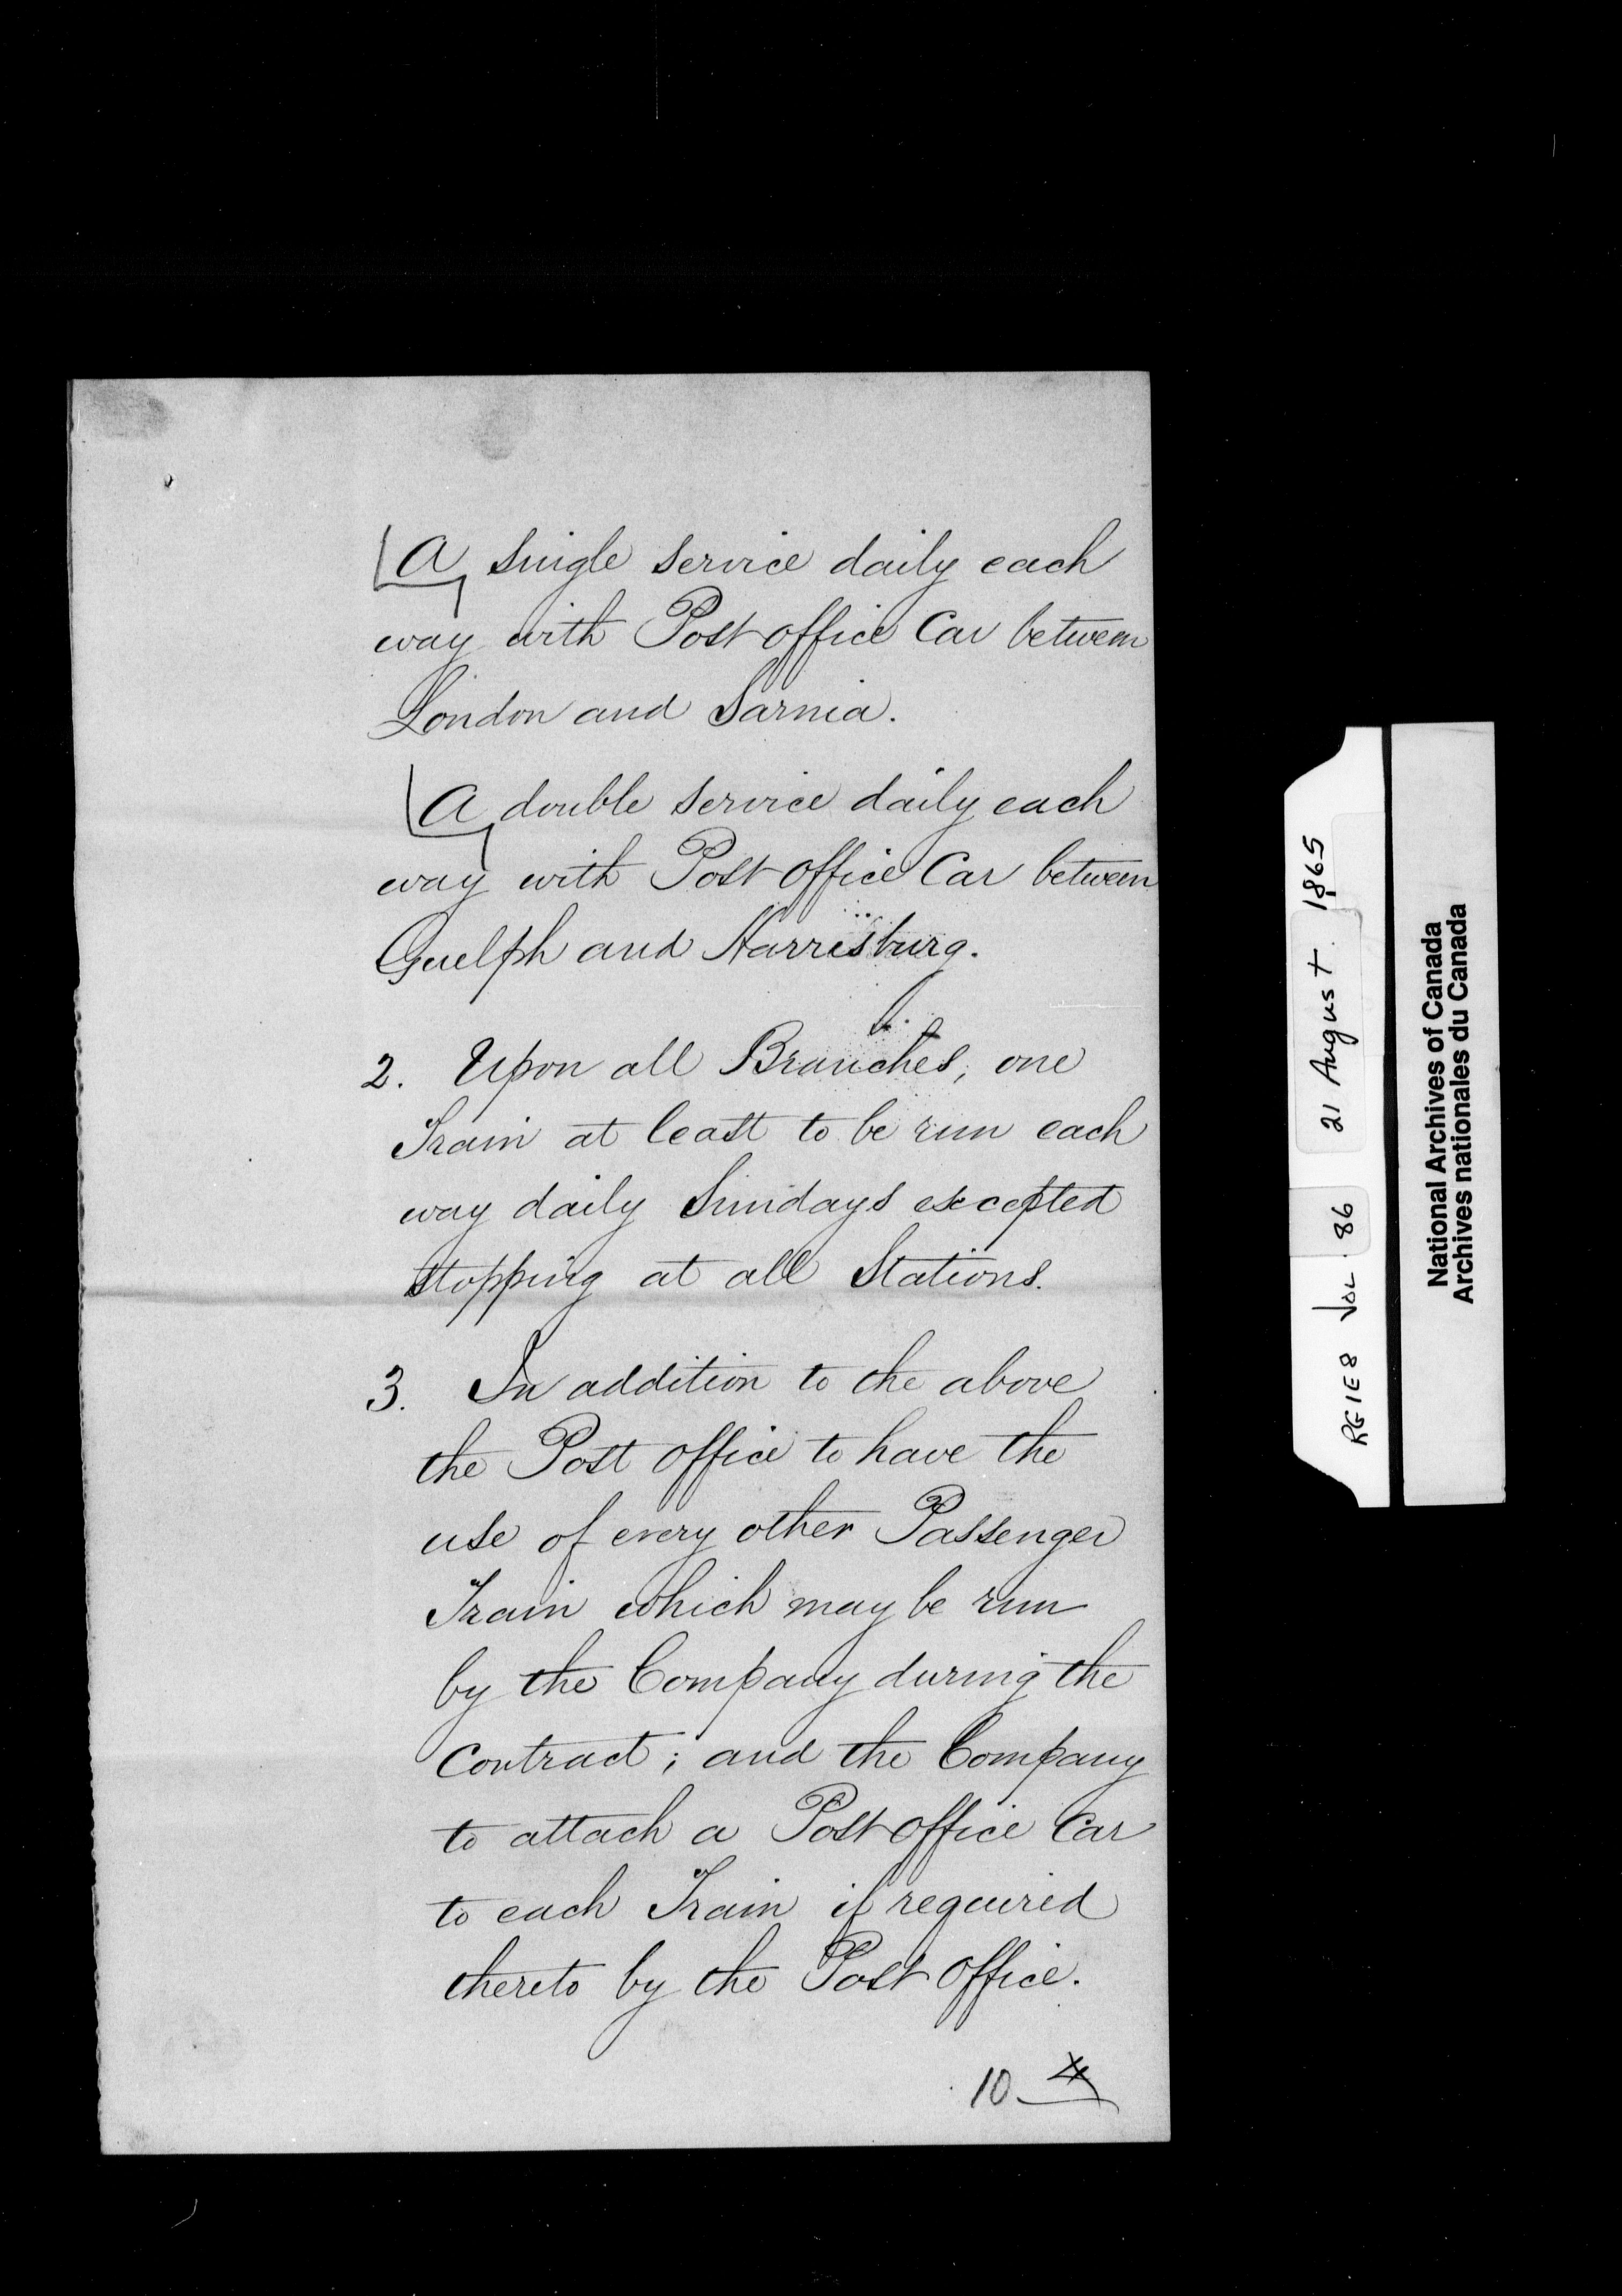 A single service daily each
way with Post office Car between
London and Sarnia.
A double service daily each
way with Post office Car between
Guelph and Harrisburg.
2. Upon all Branches, one
Train at least to be run each
way daily Sundays excepted
stopping at all Stations.
3. In addition to the above
the Post office to have the
use of every other Passenger
Train which may be run
by the Company during the
Contract; and the Company
to attach a Post office Car
to each Train if required
thereto by the Post office.
10
RG1E8 VOL. 86 21 August. 1865
National Archives of Canada
Archives nationales du Canada